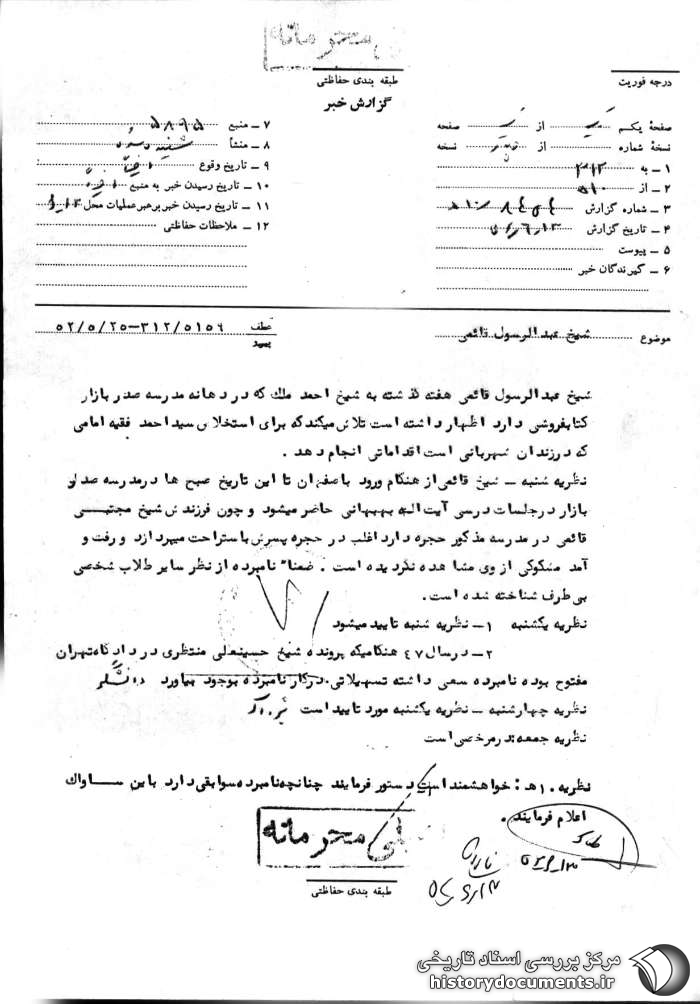 محرمانه
طبقه بندی حفاظتی
گزارش خبر
درجه فوریت
صفحهٔ یکم از صفحه
نسخهٔ شماره از نسخه
۱ – به ۳۱۲
۲ – از ۵۱۰
۳ – شماره گزارش
۴ – تاریخ گزارش
۵ – پیوست
۶ – گیرندگان خبر
۷ – منبع ۵۸۹۵
۸ – منشأ
۹ – تاریخ وقوع
۱۰ – تاریخ رسیدن خبر به منبع
۱۱ – تاریخ رسیدن خبر برهبر عملیات محل
۱۲ – ملاحظات حفاظتی
موضوع شیخ عبدالرسول قائمی
عطف ۳۱۲/۵۱۵۶–۵۲/۵/۲۵
شیخ عبدالرسول قائمی هفته گذشته به شیخ احمد ملک که در دهانه مدرسه صدر بازار
کتابفروشی دارد اظهار داشته است تلاش میکند که برای استخلاص سید احمد فقیه امامی
که در زندان شهربانی است اقداماتی انجام دهد .
نظریه شنبه – شیخ قائمی از هنگام ورود باصفهان تا این تاریخ صبح ها در مدرسه صدر
بازار در جلسات درسی آیت اله بهبهانی حاضر میشود و چون فرزندش شیخ مجتبی
قائمی در مدرسه مذکور حجره دارد اغلب در حجره پسرش باستراحت میپردازد و رفت و
آمد مشکوکی از وی مشاهده نگردیده است . ضمناً نامبرده از نظر سایر طلاب شخصی
بی طرف شناخته شده است .
نظریه یکشنبه ۱– نظریه شنبه تایید میشود
۲– در سال ۴۷ هنگامیکه پرونده شیخ حسینعلی منتظری در دادگاه تهران
مفتوح بوده نامبرده سعی داشته تسهیلاتی در کار نامبرده بوجود بیاورد
نظریه چهارشنبه – نظریه یکشنبه مورد تایید است
نظریه جمعه: در مرخصی است
نظریه ۱۰ هـ : خواهشمند است دستور فرمایند چنانچه نامبرده سوابقی دارد باین ســاواک
اعلام فرمایند .
خیلی محرمانه
طبقه بندی حفاظتی
مرکز بررسی اسناد تاریخی
historydocuments.ir